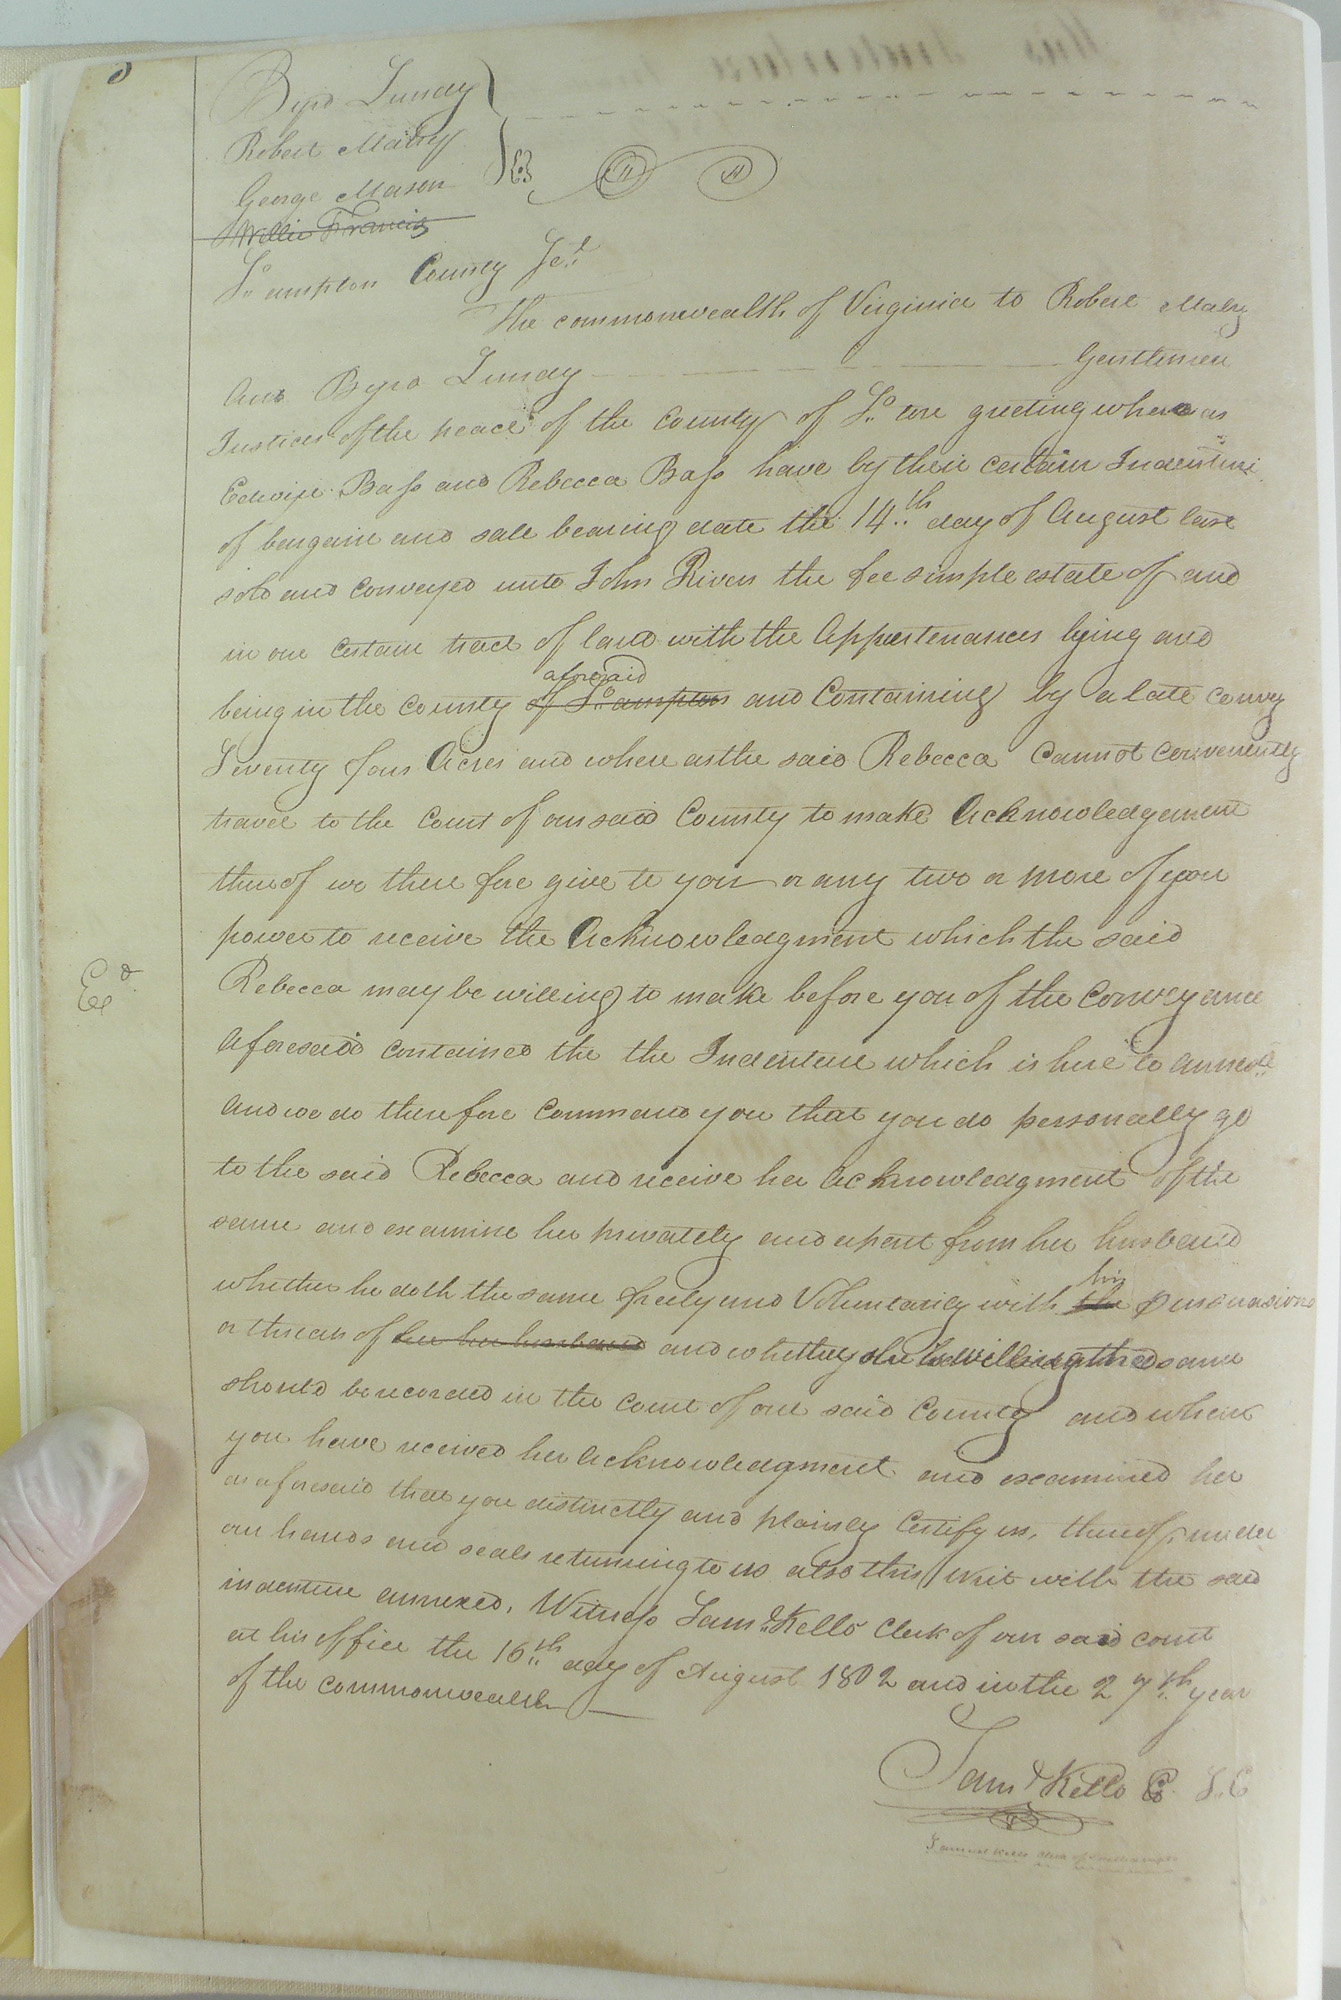 Byrd Lundy
Robert Mabry
George Mason
Willie Francis
So. ampton County Sct.
The commonwealth of Virginia to Robert Mabry
and Byrd Lundy Gentlemen
Justices of the peace of the County of So. ton greeting where as
Edwin Bass and Rebecca Bass have by their certain Indenture
of bargain and sale bearing date the 14th day of August last
sold and conveyed unto John Rivers the fee simple estate of and
in one certain tract of land with the Appurtenances lying and
being in the County of So. ampton aforesaid and Containing by a late convey
Seventy four Acres and where as the said Rebecca Cannot conveniently
travel to the Court of our said County to make Acknowledgement
thereof we there fore give to you or any two or more of you
power to receive the Acknowledgment which the said
Exd.
Rebecca may be willing to make before you of the Conveyance
aforesaid contained the the Indenture which is here to annexd
and we do therefore command you that you do personally go
to the said Rebecca and receive her acknowledgment of the
same and examine her privately and apart from her husband
whether he doth the same freely and Voluntarily with the his persuasions
or threats of her her husband and whether she be willing the same
should be recorded in the Court of our said County and when
you have received her acknowledgment and examined her
as aforesaid that you distinctly and plainly Certify us, thereof under
our hands and seals returning to us also this writ with the said
indenture annexed, Witness Saml. Kello Clerk of our said court
at his office the 16th day of August 1802 and in the 27th year
of the commonwealth
Saml Kello C. S. C
Samuel Kello Clerk of Southampton